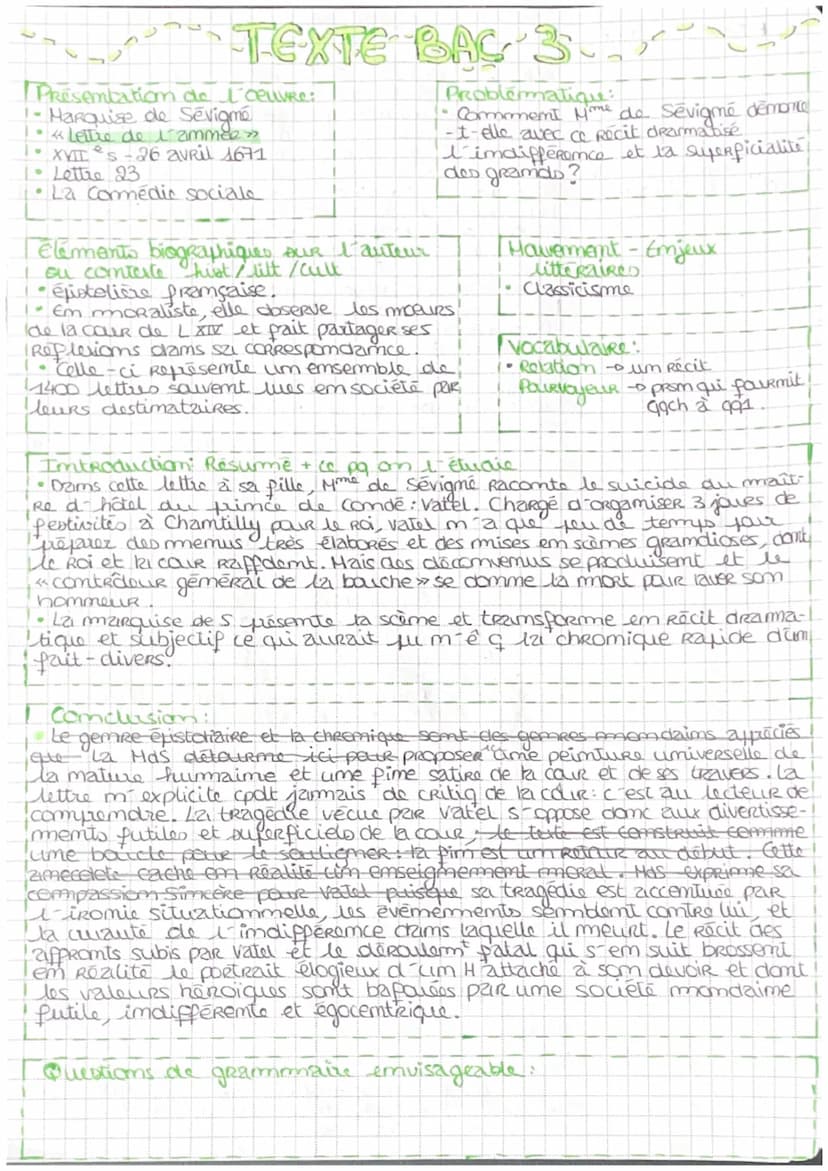 TEXTE BAC 3
Présentation de l'œuvre:
• Marquise de Sévigné
• « Lettre de l'année »
• XVII e s - 26 avril 1671
• Lettre 23
• La Comédie sociale
Problématique:
• Comment Mme de Sévigné démontre
-t-elle avec ce récit dramatisé
l'indifférence et la superficialité
des grands?
Éléments biographiques sur l'auteur
ou contexte hist/litt/cult
• épistolière française.
• En moraliste, elle observe les mœurs
de la cour de L XIV et fait partager ses
Réflexions dans sa correspondance.
• Celle-ci Représente un ensemble de
1400 lettres souvent lues en société par
leurs destinataires.
Mouvement - Enjeux
littéraires
• Classicisme
Vocabulaire:
• Relation → un récit
Pourvoyeur → prsn qui fournit
qqch à qq1.
Introduction: Résumé + ce pq on l'étudie
• Dans cette lettre à sa fille, Mme de Sévigné raconte le suicide du maît-
re d'hôtel du prince de Condé: Vatel. Chargé d'organiser 3 jours de
festivités à Chantilly pour le Roi, Vatel n'a que peu de temps pour
préparer des menus très élaborés et des mises en scènes grandioses, dont
le Roi et la cour raffolent. Mais des déconvenus se produisent et le
« contrôleur général de la bouche » se donne la mort pour laver son
honneur.
• La marquise de S présente la scène et transforme en récit drama-
tique et subjectif ce qui aurait pu n'ê q la chronique rapide d'un
fait-divers.
Conclusion:
• Le genre épistolaire et la chronique sont des genres mondains appréciés
que La MdS détourne ici pour proposer une peinture universelle de
la nature humaine et une fine satire de la cour et de ses travers. La
lettre n'explicite cpdt jamais de critiq de la cour: c'est au lecteur de
comprendre. La tragédie vécue par Vatel s'oppose donc aux divertisse-
ments futiles et superficiels de la cour, le texte est construit comme
une boucle pour le souligner: la fin est un retour au début. Cette
anecdote cache en réalité un enseignement moral. MdS exprime sa
compassion Sincère pour Vatel puisque sa tragédie est accentuée par
l'ironie situationnelle, les événements semblent contre lui, et
la cruauté de l'indifférence dans laquelle il meurt. Le récit des
affronts subis par Vatel et le déroulemt fatal qui s'en suit brossent
en Réalité le portrait élogieux d'un H attaché à son devoir et dont
les valeurs héroïques sont bafouées par une société mondaine
futile, indifférente et égocentrique.
Questions de grammaire envisageable: